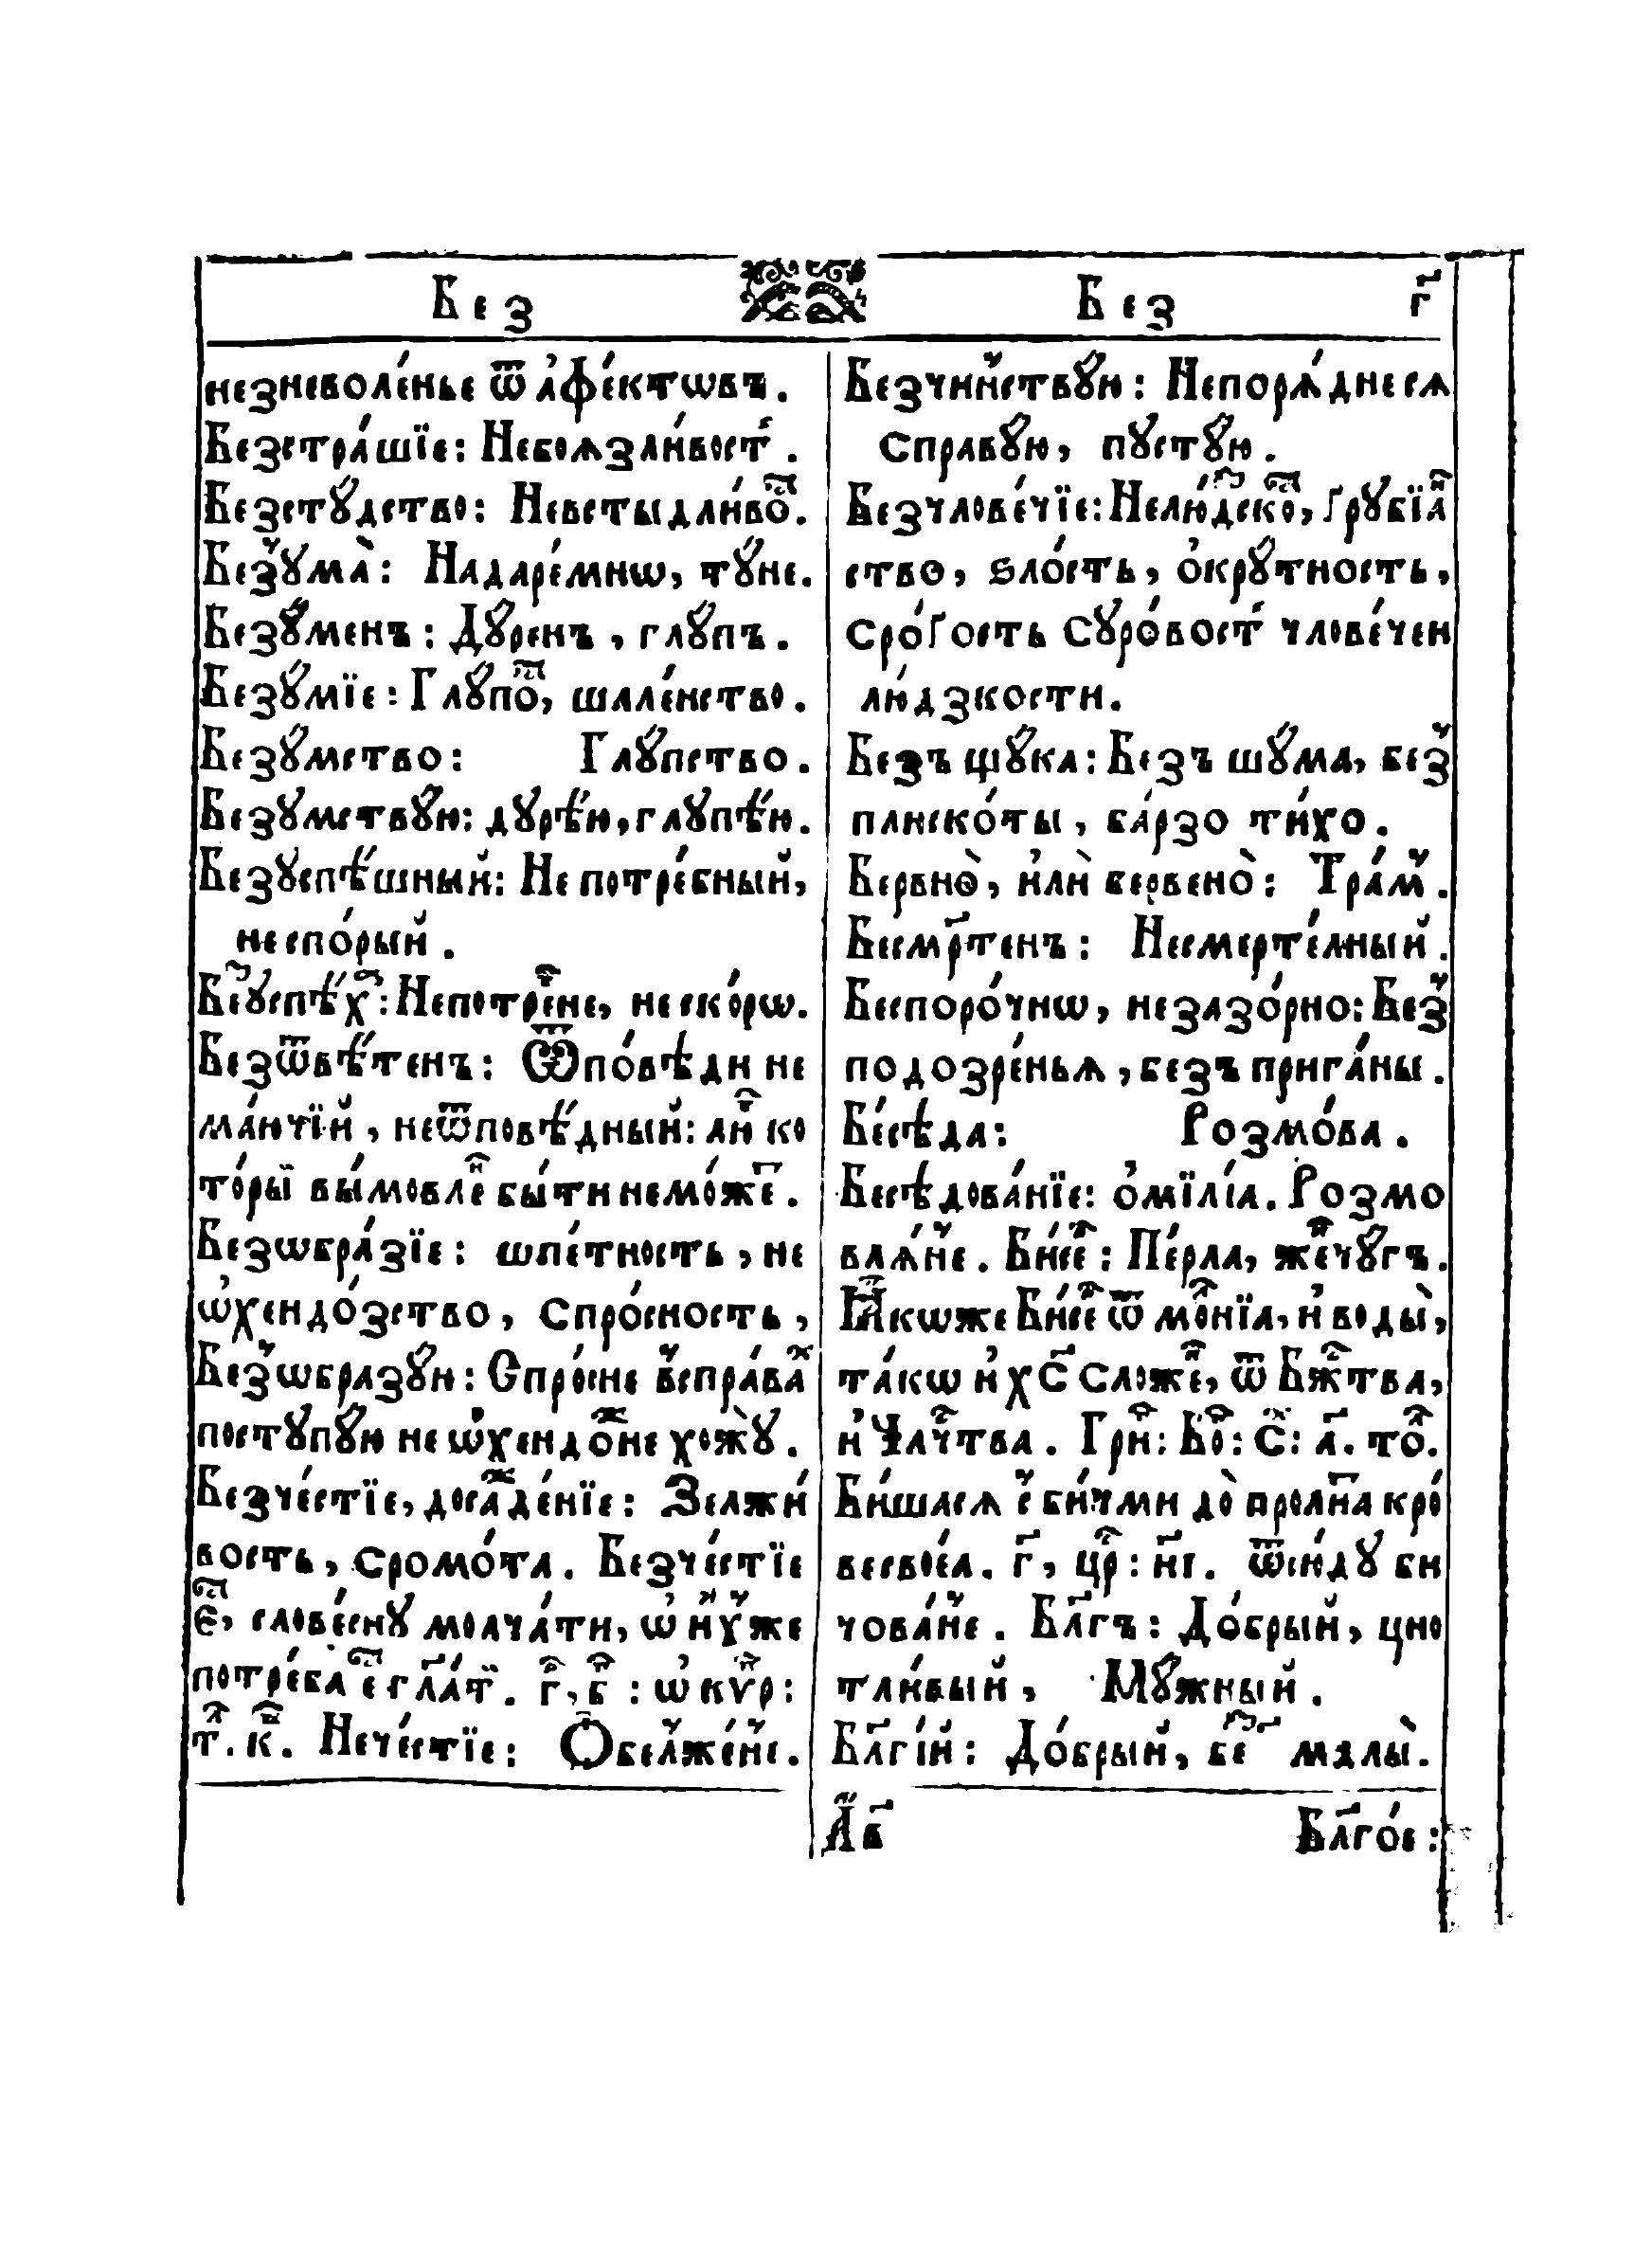 Без Без г҃
незневоле́нье ѿ а҆фе́ктѡвъ.
Безстра́шїе: Небоѧзли́вост́.
Безстꙋ́дство: Невстыдли́воⷭ҇.
Безꙋма̀: Надаре́мнѡ, тꙋ́не.
Безꙋ́менъ: Дꙋ́ренъ, глꙋпъ.
Безꙋ́мїе: Глꙋ́поⷭ҇, шале́нство.
Безꙋ́мство: Глꙋ́пство.
Безꙋмствꙋ́ю: дꙋрѣ́ю, глꙋпѣ́ю.
Безꙋспѣ́шный: Непотре́бный,
неспо́рый.
Беⷥꙋспѣ́хⷶ: Непотреⷠ́не, нескórѡ.
Безѿвѣ́тенъ: Ѿпо́вѣди не
ма́ючїй, неѿповѣ́дный: аниⷡ҇ ко
то́рый вы́мовлеⷩ҇ бы́ти немо́жеⷮ.
Безѡбра́зїе: шпе́тность, не
ѡ҆хендо́зство, спро́сность,
Безѡбразꙋ́ю: Спро́сне всправа
постꙋпꙋ́ю не ѡ҆хендоⷤне хожꙋ̀.
Безче́стїе, досаⷤде́нїе: Зелжи́
вость, сромо́та. Безче́стїе
еⷭ҇, слове́снꙋ молча́ти, ѡ҆ ниⷯ ꙋ҆же
потре́ба еⷭ҇ гл҃а́т. г҃, б: ѡ҆ кѵ́р:
тⷧ. кⷩ. Нече́стїе: Ѻбелже́не.
Безчи́нствꙋю: Непорѧ́дне сѧ
справꙋ́ю, пꙋстꙋ́ю.
Безчлове́чїе: Нелю́дскоⷭ҇, ґрꙋбїаⷩ
ство, ѕло́сть, о҆крꙋ́тность,
сро́ґость сꙋро́вост́ члове́чен
лю́дзкости.
Безъ щꙋ́ка: Безъ шꙋ́ма, без̾
плюско́ты, ба́рзо ти́хо.
Бервно̀, и҆лѝ бервено̀: Тра́м̾.
Бесмр҃тенъ: Несмерте́лный.
Беспоро́чнѡ, незазо́рно: Без̾
подозре́ньѧ, безъ прига́ны.
Бе́сѣда: Розмо́ва.
Бесѣдова́нїе: о҆мїлі́а. Розмо
влѧ́н̾е. Би́сеⷬ: Пе́рла, жеⷨчꙋгъ.
Ꙗ҆кѡже Би́сеⷬ ѿ моⷧнїа, и҆ воды̀,
та́кѡ и҆ хс҃ сложеⷩ, ѿ Бжⷭ҇тва,
и҆ Члч҃тва. Гри: Бо: С: а҃. тоⷧ.
Би́шасѧ с̾ би́чми до̀ пролⷩа кро́
ве своеа́. г҃, црⷭ҇: и҃і. ѿсю́дꙋ би
чова́н̾е. Бл҃гъ: До́брый, цно
тли́вый, Мꙋ́жный.
Бл҃гі́й: До́брый, беⷥ малы̀.
А҆в҃ Бл҃го́е: